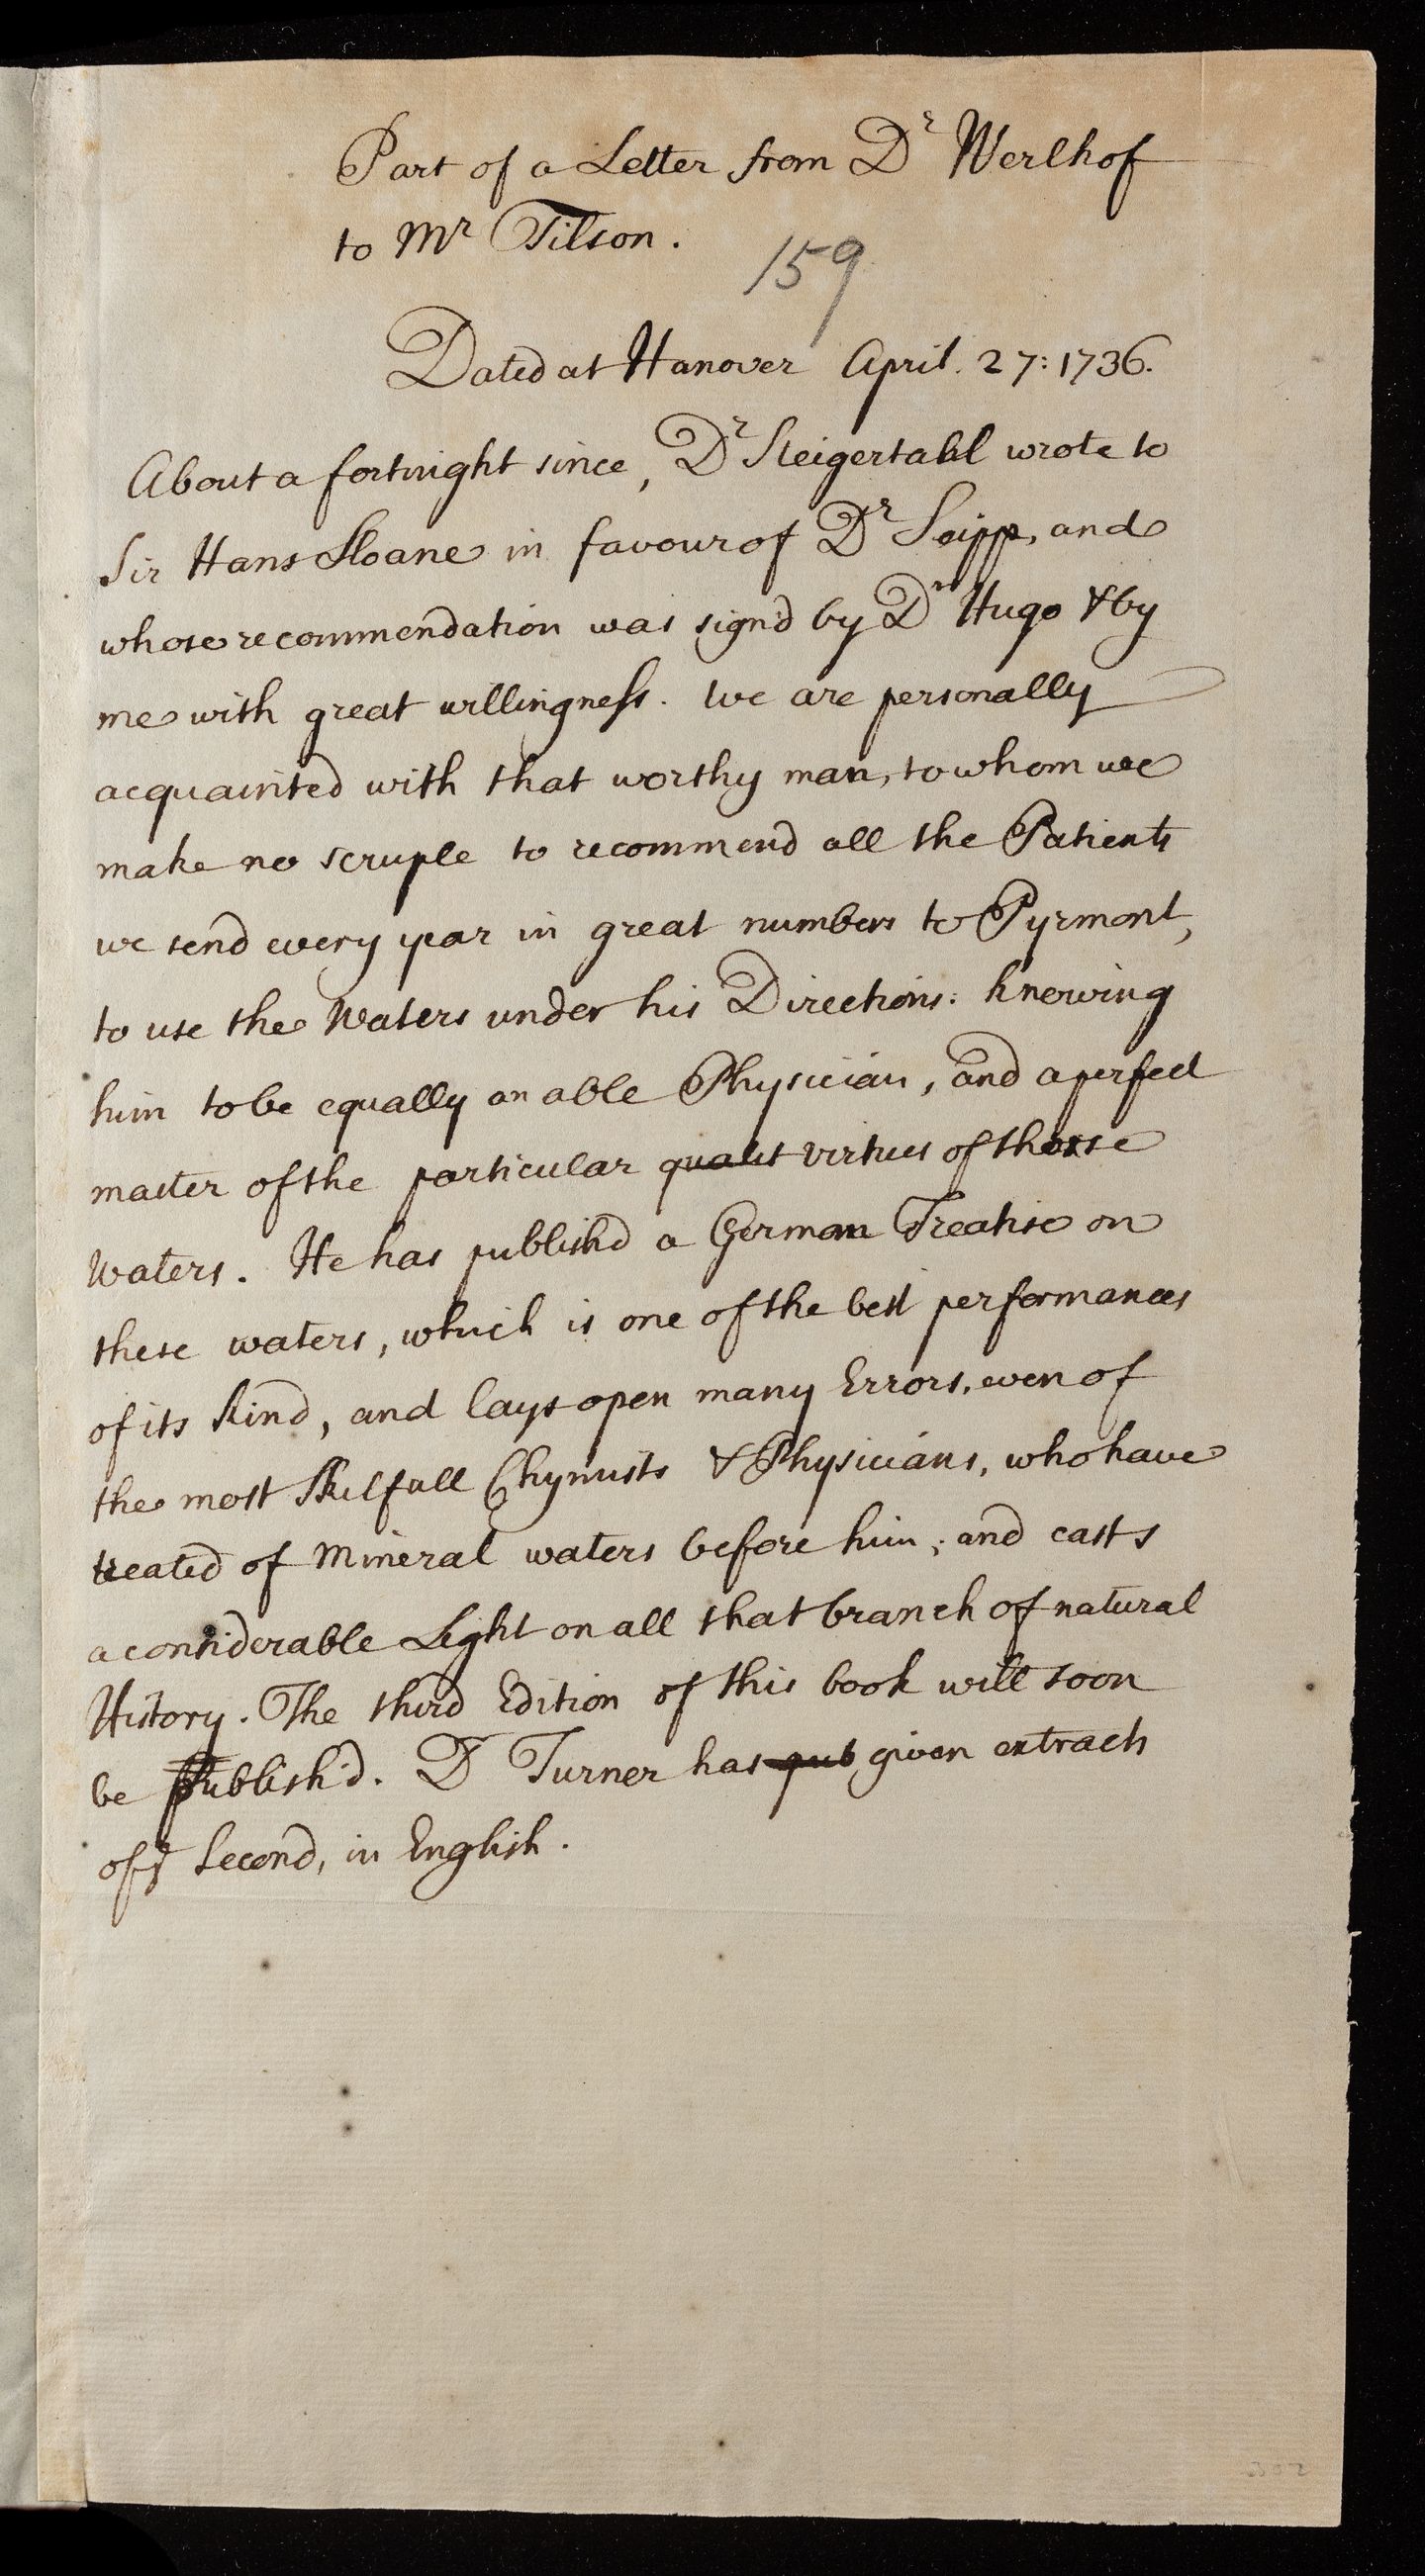 Part of a Letter from Dr Werlhof
to Mr Tilson.
159
Dated at Hanover April. 27: 1736.
About a fortnight since, Dr Steigertahl wrote to
Sir Hans Sloane in favour of Dr Seipp, and
whose recommendation was sign'd by Dr Hugo & by
me with great willingness. We are personally
acquainted with that worthy man, to whom we
make no scruple to recommend all the Patients
we send every year in great numbers to Pyrmont,
to use the Waters under his Directions: knowing
him to be equally an able Physician, and a perfect
master of the particular qualit virtues of these
Waters. He has publish'd a German Treatise on
these waters, which is one of the best performances
of its kind, and lays open many Errors, even of
the most Skilfull Chymists & Physicians, who have
treated of Mineral waters before him; and casts
a considerable Light on all that branch of natural
History. The third Edition of this book will soon
be publish'd. D Turner has pub given extracts
of ye Second, in English.